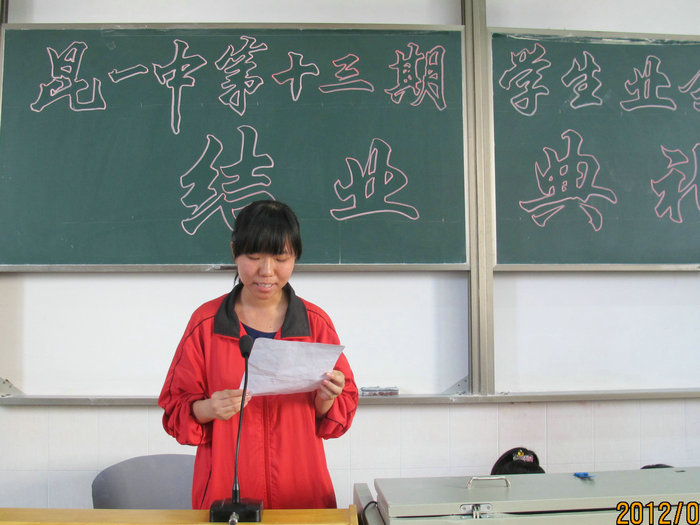 昆一中第十三期学生业
结业典礼
2012/0